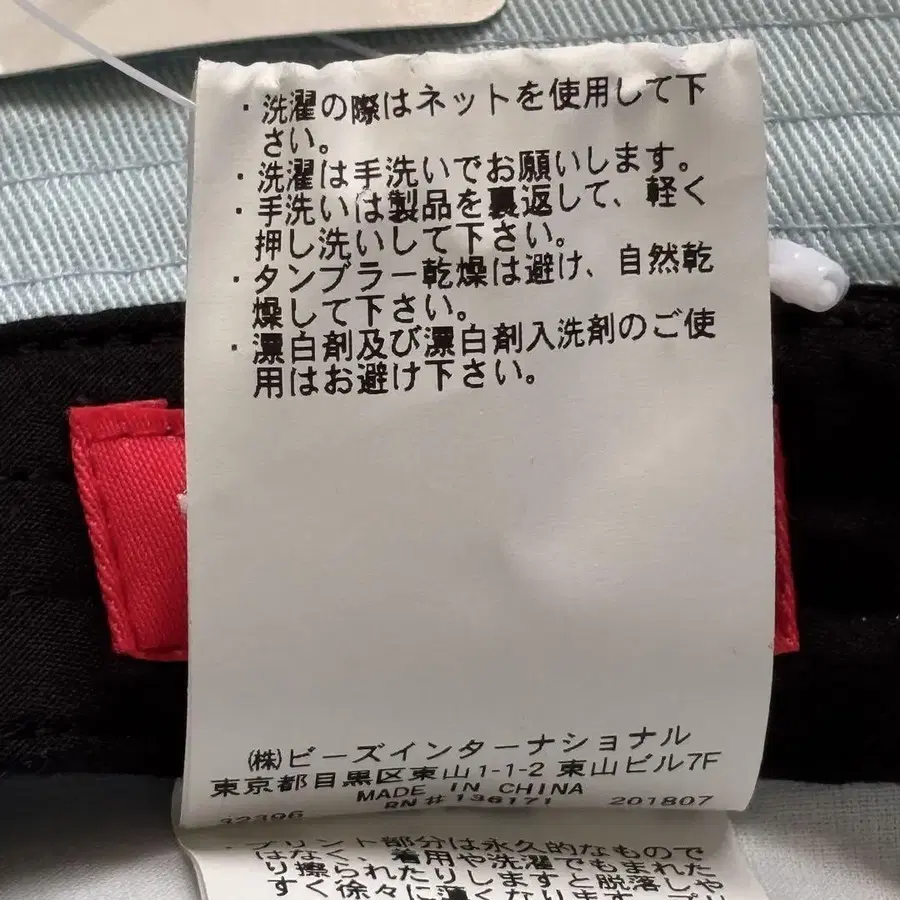 ・洗濯の際はネットを使用して下
さい。
・洗濯は手洗いでお願いします。
・手洗いは製品を裏返して、軽く
押し洗いして下さい。
・タンブラー乾燥は避け、自然乾
燥して下さい。
・漂白剤及び漂白剤入洗剤のご使
用はお避け下さい。
㈱ビーズインターナショナル
東京都目黒区東山1-1-2 東山ビル7F
MADE IN CHINA
32396 RN # 136171 201807
・プリント部分は永久的なもので
はなく、着用や洗濯でもまれた
り擦られたりしますと脱落しや
すく徐々に薄くなります。プリ